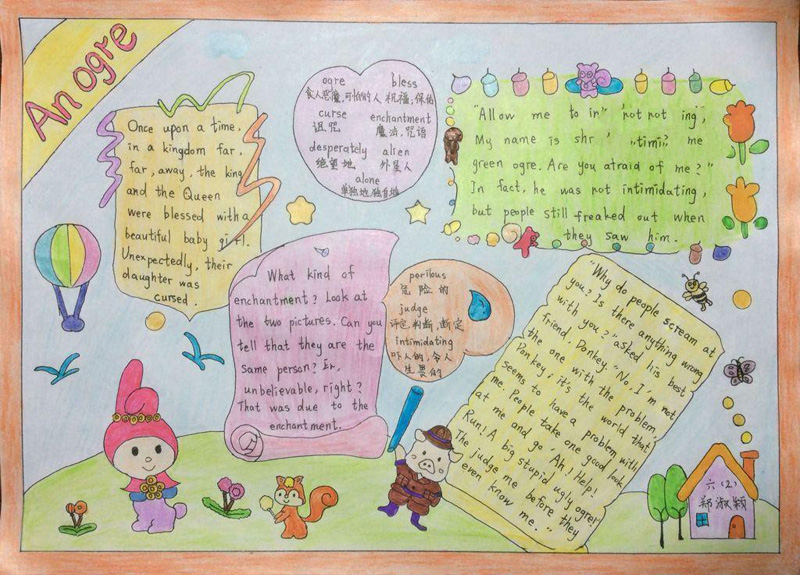 An ogre
Once upon a time,
in a kingdom far,
far, away, the king
and the Queen
were blessed with a
beautiful baby girl.
Unexpectedly, their
daughter was
cursed.
ogre bless
食人恶魔,可怕的人 祝福,保佑
curse enchantment
诅咒 魔法,咒语
desperately alien
绝望地 外星人
alone
单独地,独自地
"Allow me to in" 'not not ing",
My name is shr' "timi? me
green ogre. Are you afraid of me?"
In fact, he was not intimidating,
but people still freaked out when
they saw him.
What kind of
enchantment? Look at
the two pictures. Can you
tell that they are the
same person? Eh,
unbelievable, right?
That was due to the
enchantment.
perilous
危险的
judge
评定,判断,断定
intimidating
吓人的,令人
生畏的
"Why do people scream at
you? Is there anything wrong
with you?" asked his best
friend, Donkey. "No. I'm not
the one with the problem,
Donkey, it's the world that
seems to have a problem with
me. People take one good look
at me and go 'Ah! Help!
Run! A big stupid ugly ogre!'
The judge me before they
even know me."
六(2)
郑淑颖